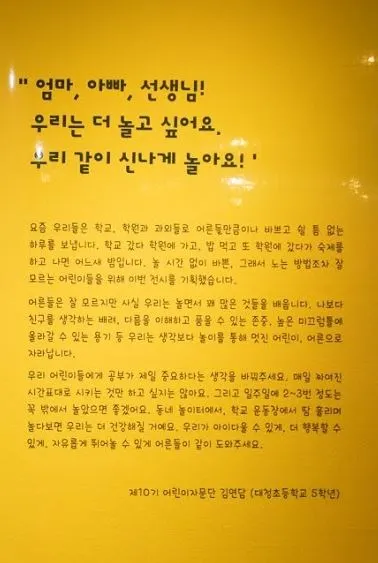 " 엄마, 아빠, 선생님!
우리는 더 놀고 싶어요.
우리 같이 신나게 놀아요! '
요즘 우리들은 학교, 학원과 과외들로 어른들만큼이나 바쁘고 쉴 틈 없는
하루를 보냅니다. 학교 갔다 학원에 가고, 밥 먹고 또 학원에 갔다가 숙제를
하고 나면 어느새 밤입니다. 놀 시간 없이 바쁜, 그래서 노는 방법조차 잘
모르는 어린이들을 위해 이번 전시를 기획했습니다.
어른들은 잘 모르지만 사실 우리는 놀면서 꽤 많은 것들을 배웁니다. 나보다
친구를 생각하는 배려, 다름을 이해하고 품을 수 있는 존중, 높은 미끄럼틀에
올라갈 수 있는 용기 등 우리는 생각보다 놀이를 통해 멋진 어린이, 어른으로
자라납니다.
우리 어린이들에게 공부가 제일 중요하다는 생각을 바꿔주세요. 매일 짜여진
시간표대로 시키는 것만 하고 싶지는 않아요. 그리고 일주일에 2~3번 정도는
꼭 밖에서 놀았으면 좋겠어요. 동네 놀이터에서, 학교 운동장에서 땀 흘리며
놀다보면 우리는 더 건강해질 거예요. 우리가 아이다울 수 있게, 더 행복할 수
있게, 자유롭게 뛰어놀 수 있게 어른들이 같이 도와주세요.
제10기 어린이자문단 김면담 (대청초등학교 5학년)